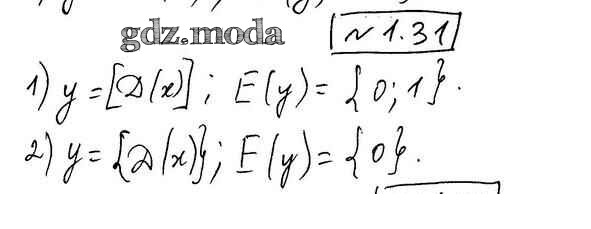 gdz.moda
№1.31
1) y = [D(x)]; E(y) = {0; 1}.
2) y = {D(x)}; E(y) = {0}.